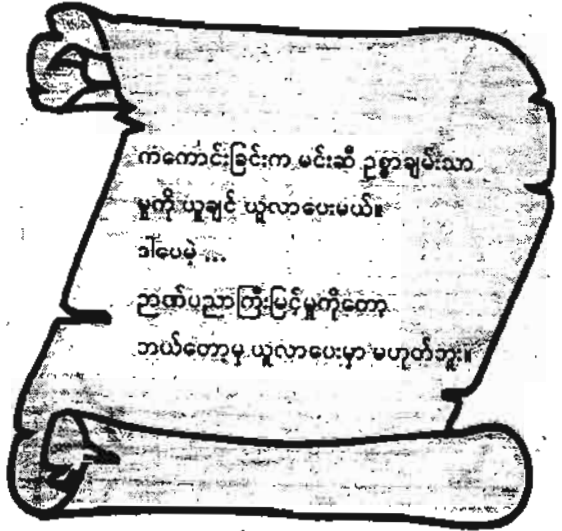 ကံကောင်းခြင်းက မင်းဆီ ဥစ္စာချမ်းသာ
မှုကို ယူချင် ယူလာပေးမယ်။
ဒါပေမဲ့ ...
ဉာဏ်ပညာကြီးမြင့်မှုကိုတော့
ဘယ်တော့မှ ယူလာပေးမှာ မဟုတ်ဘူး။